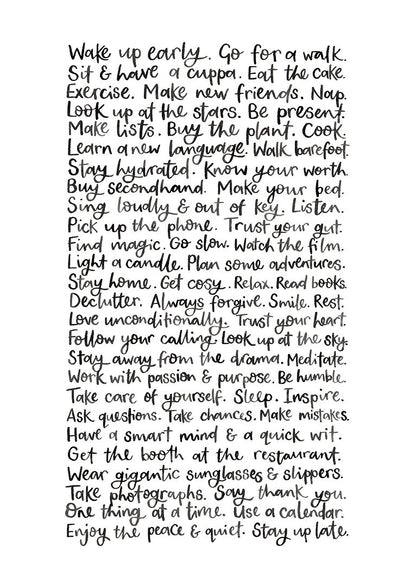 Wake up early. Go for a walk.
Sit & have a cuppa. Eat the cake.
Exercise. Make new friends. Nap.
Look up at the stars. Be present.
Make lists. Buy the plant. Cook.
Learn a new language. Walk barefoot.
Stay hydrated. Know your worth.
Buy secondhand. Make your bed.
Sing loudly & out of key. Listen.
Pick up the phone. Trust your gut.
Find magic. Go slow. Watch the film.
Light a candle. Plan some adventures.
Stay home. Get cosy. Relax. Read books.
Declutter. Always forgive. Smile. Rest.
Love unconditionally. Trust your heart.
Follow your calling. Look up at the sky.
Stay away from the drama. Meditate.
Work with passion & purpose. Be humble.
Take care of yourself. Sleep. Inspire.
Ask questions. Take chances. Make mistakes.
Have a smart mind & a quick wit.
Get the booth at the restaurant.
Wear gigantic sunglasses & slippers.
Take photographs. Say thank you.
One thing at a time. Use a calendar.
Enjoy the peace & quiet. Stay up late.